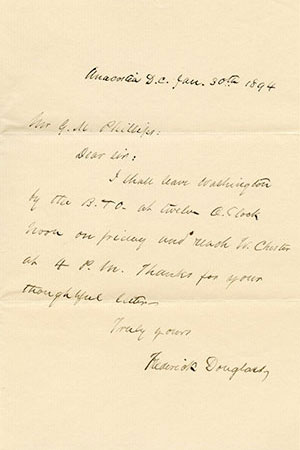 Anacostia D.C. Jan. 30th 1894
Mr G. M. Phillips:
Dear Sir:
I shall leave Washington
by the B. & O. at twelve O. Clock
Noon on friday and reach W. Chester
at 4 P. M. Thanks for your
thoughtful letter—
Truly yours
Frederick Douglass